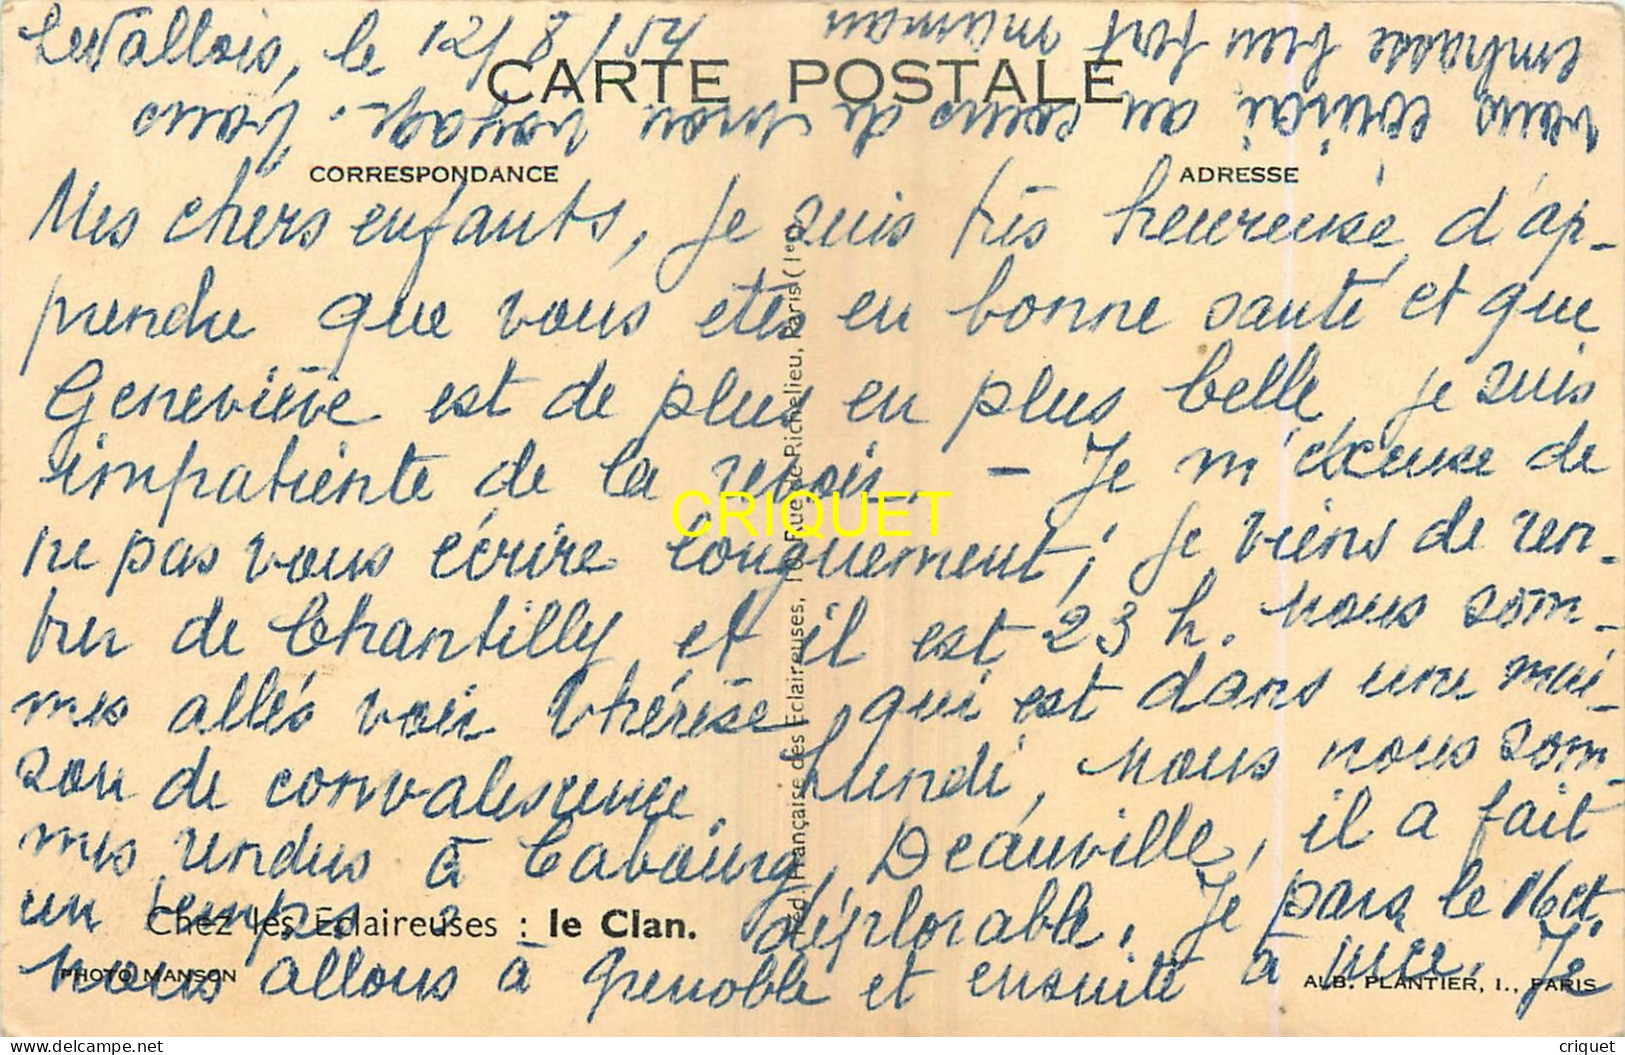 Levallois, le 12/8/54
CARTE POSTALE
CORRESPONDANCE
ADRESSE
Mes chers enfants, je suis très heureuse d'ap-
prendre que vous etes en bonne santé et que
Geneviève est de plus en plus belle, je suis
impatiente de la revoir. - Je m'excuse de
ne pas vous écrire longuement; je viens de ren-
trer de Chantilly et il est 23 h. Nous som-
mes allés voir Thérèse qui est dans une mai-
son de convalescence. Lundi, nous nous som-
mes rendus à Cabourg, Deauville, il a fait
un temps déplorable. Je pars le 16 et
nous allons à Grenoble et ensuite à Nice. Je
vous écrirai au cours de mon voyage. Vous
embrasse bien fort maman
Chez les Eclaireuses : le Clan.
PHOTO MANSON
ALB. PLANTIER, I., PARIS
Française des Eclaireuses, Rue de Richelieu, Paris (1er)
CRIQUET
delcampe.net
criquet